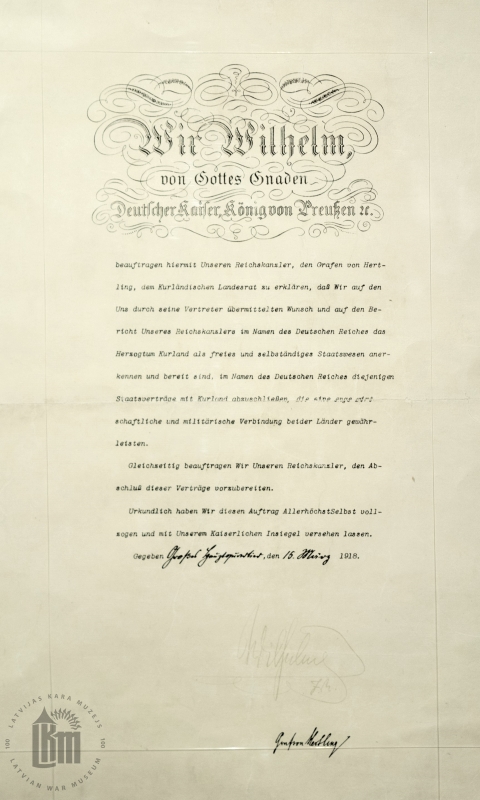 Wir Wilhelm,
von Gottes Gnaden
Deutscher Kaiser, König von Preußen ꝛc.
beauftragen hiermit Unseren Reichskanzler, den Grafen von Hert-
ling, dem Kurländischen Landesrat zu erklären, daß Wir auf den
Uns durch seine Vertreter übermittelten Wunsch und auf den Be-
richt Unseres Reichskanzlers im Namen des Deutschen Reiches das
Herzogtum Kurland als freies und selbständiges Staatswesen aner-
kennen und bereit sind, im Namen des Deutschen Reiches diejenigen
Staatsverträge mit Kurland abzuschließen, die eine enge wirt-
schaftliche und militärische Verbindung beider Länder gewähr-
leisten.
Gleichzeitig beauftragen Wir Unseren Reichskanzler, den Ab-
schluß dieser Verträge vorzubereiten.
Urkundlich haben Wir diesen Auftrag AllerhöchstSelbst voll-
zogen und mit Unserem Kaiserlichen Insiegel versehen lassen.
Gegeben Großes Hauptquartier, den 15. März 1918.
Wilhelm
Graf von Hertling
LATVIJAS KARA MUZEJS
100 LKM 100
LATVIAN WAR MUSEUM